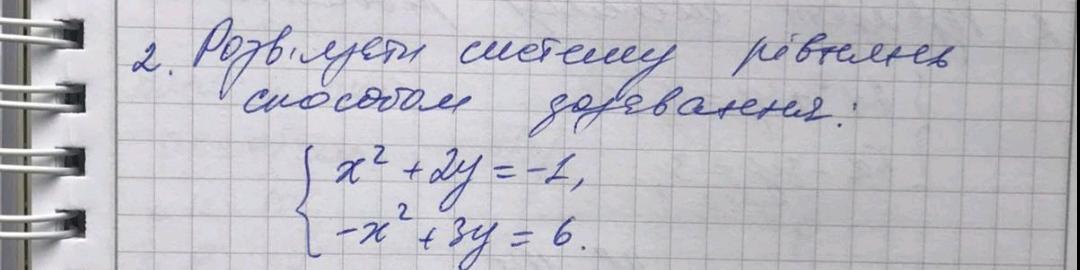 2. Розв'язати систему рівнянь
способом додавання:
x² + 2y = -1,
-x² + 3y = 6.